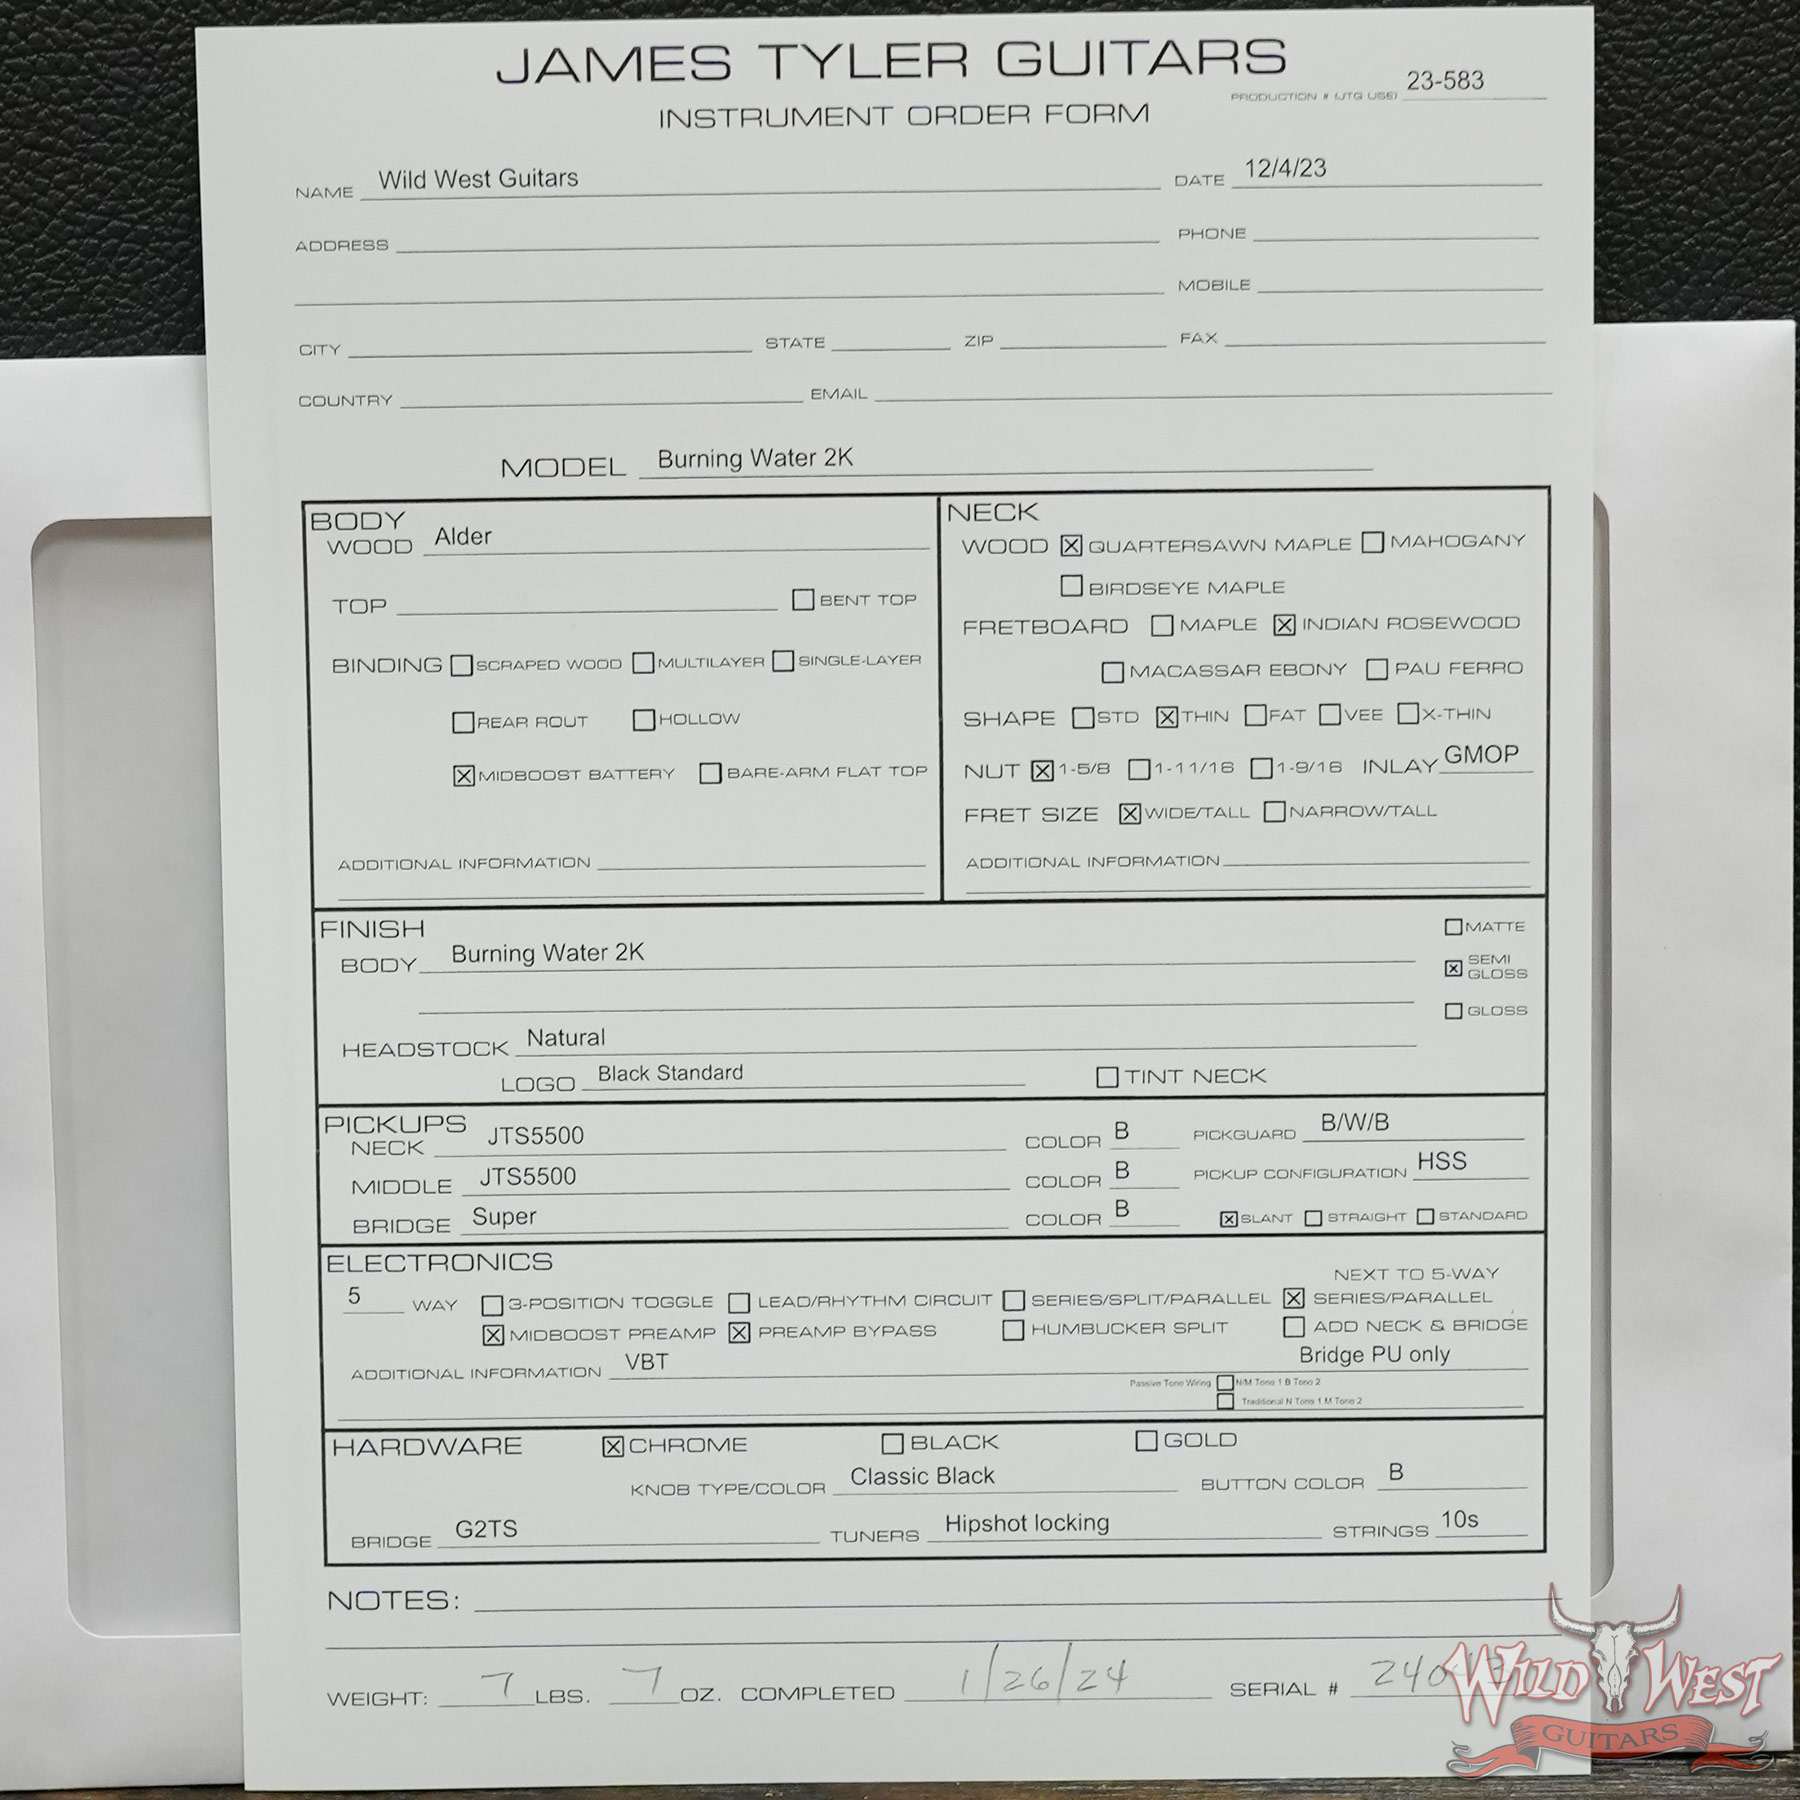 JAMES TYLER GUITARS
INSTRUMENT ORDER FORM
PRODUCTION # (JTG USE) 23-583
NAME Wild West Guitars DATE 12/4/23
ADDRESS PHONE
MOBILE
CITY STATE ZIP FAX
COUNTRY EMAIL
MODEL Burning Water 2K
BODY
WOOD Alder
TOP BENT TOP
BINDING SCRAPED WOOD MULTILAYER SINGLE-LAYER
REAR ROUT HOLLOW
MIDBOOST BATTERY BARE-ARM FLAT TOP
ADDITIONAL INFORMATION
NECK
WOOD QUARTERSAWN MAPLE MAHOGANY
BIRDSEYE MAPLE
FRETBOARD MAPLE INDIAN ROSEWOOD
MACASSAR EBONY PAU FERRO
SHAPE STD THIN FAT VEE X-THIN
NUT 1-5/8 1-11/16 1-9/16 INLAY GMOP
FRET SIZE WIDE/TALL NARROW/TALL
ADDITIONAL INFORMATION
FINISH
BODY Burning Water 2K
MATTE
SEMI
GLOSS
GLOSS
HEADSTOCK Natural
LOGO Black Standard TINT NECK
PICKUPS
NECK JTS5500 COLOR B PICKGUARD B/W/B
MIDDLE JTS5500 COLOR B PICKUP CONFIGURATION HSS
BRIDGE Super COLOR B SLANT STRAIGHT STANDARD
ELECTRONICS
NEXT TO 5-WAY
5 WAY 3-POSITION TOGGLE LEAD/RHYTHM CIRCUIT SERIES/SPLIT/PARALLEL SERIES/PARALLEL
MIDBOOST PREAMP PREAMP BYPASS HUMBUCKER SPLIT ADD NECK & BRIDGE
ADDITIONAL INFORMATION VBT Bridge PU only
Passive Tone Wiring N/M Tone 1 B Tone 2
Traditional N Tone 1 M Tone 2
HARDWARE CHROME BLACK GOLD
KNOB TYPE/COLOR Classic Black BUTTON COLOR B
BRIDGE G2TS TUNERS Hipshot locking STRINGS 10s
NOTES:
WEIGHT: 7 LBS. 7 OZ. COMPLETED 1/26/24 SERIAL #
WILD WEST
GUITARS